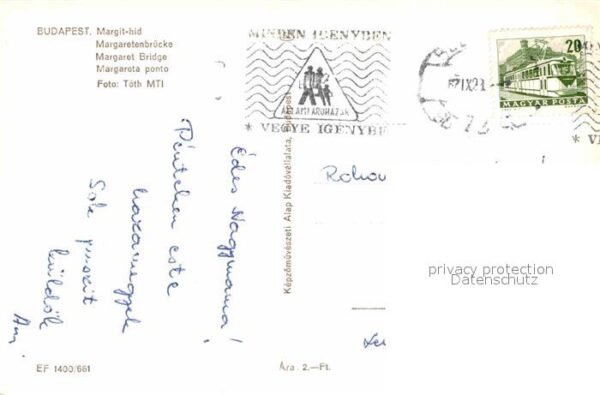 BUDAPEST. Margit-hid
Margaretenbrücke
Margaret Bridge
Margareta ponto
Foto: Tóth MTI
MINDEN IGÉNYBEN
ÁLLAMI ÁRUHÁZAK
* VEGYE IGÉNYBE
20
MAGYAR POSTA
* V
Édes Nagymama!
Pénteken este
hazamegyek
Sok puszit
küldök
Képzőművészeti Alap Kiadóvállalata, Budapest
privacy protection
Datenschutz
EF 1400/661
Ára: 2.-Ft.